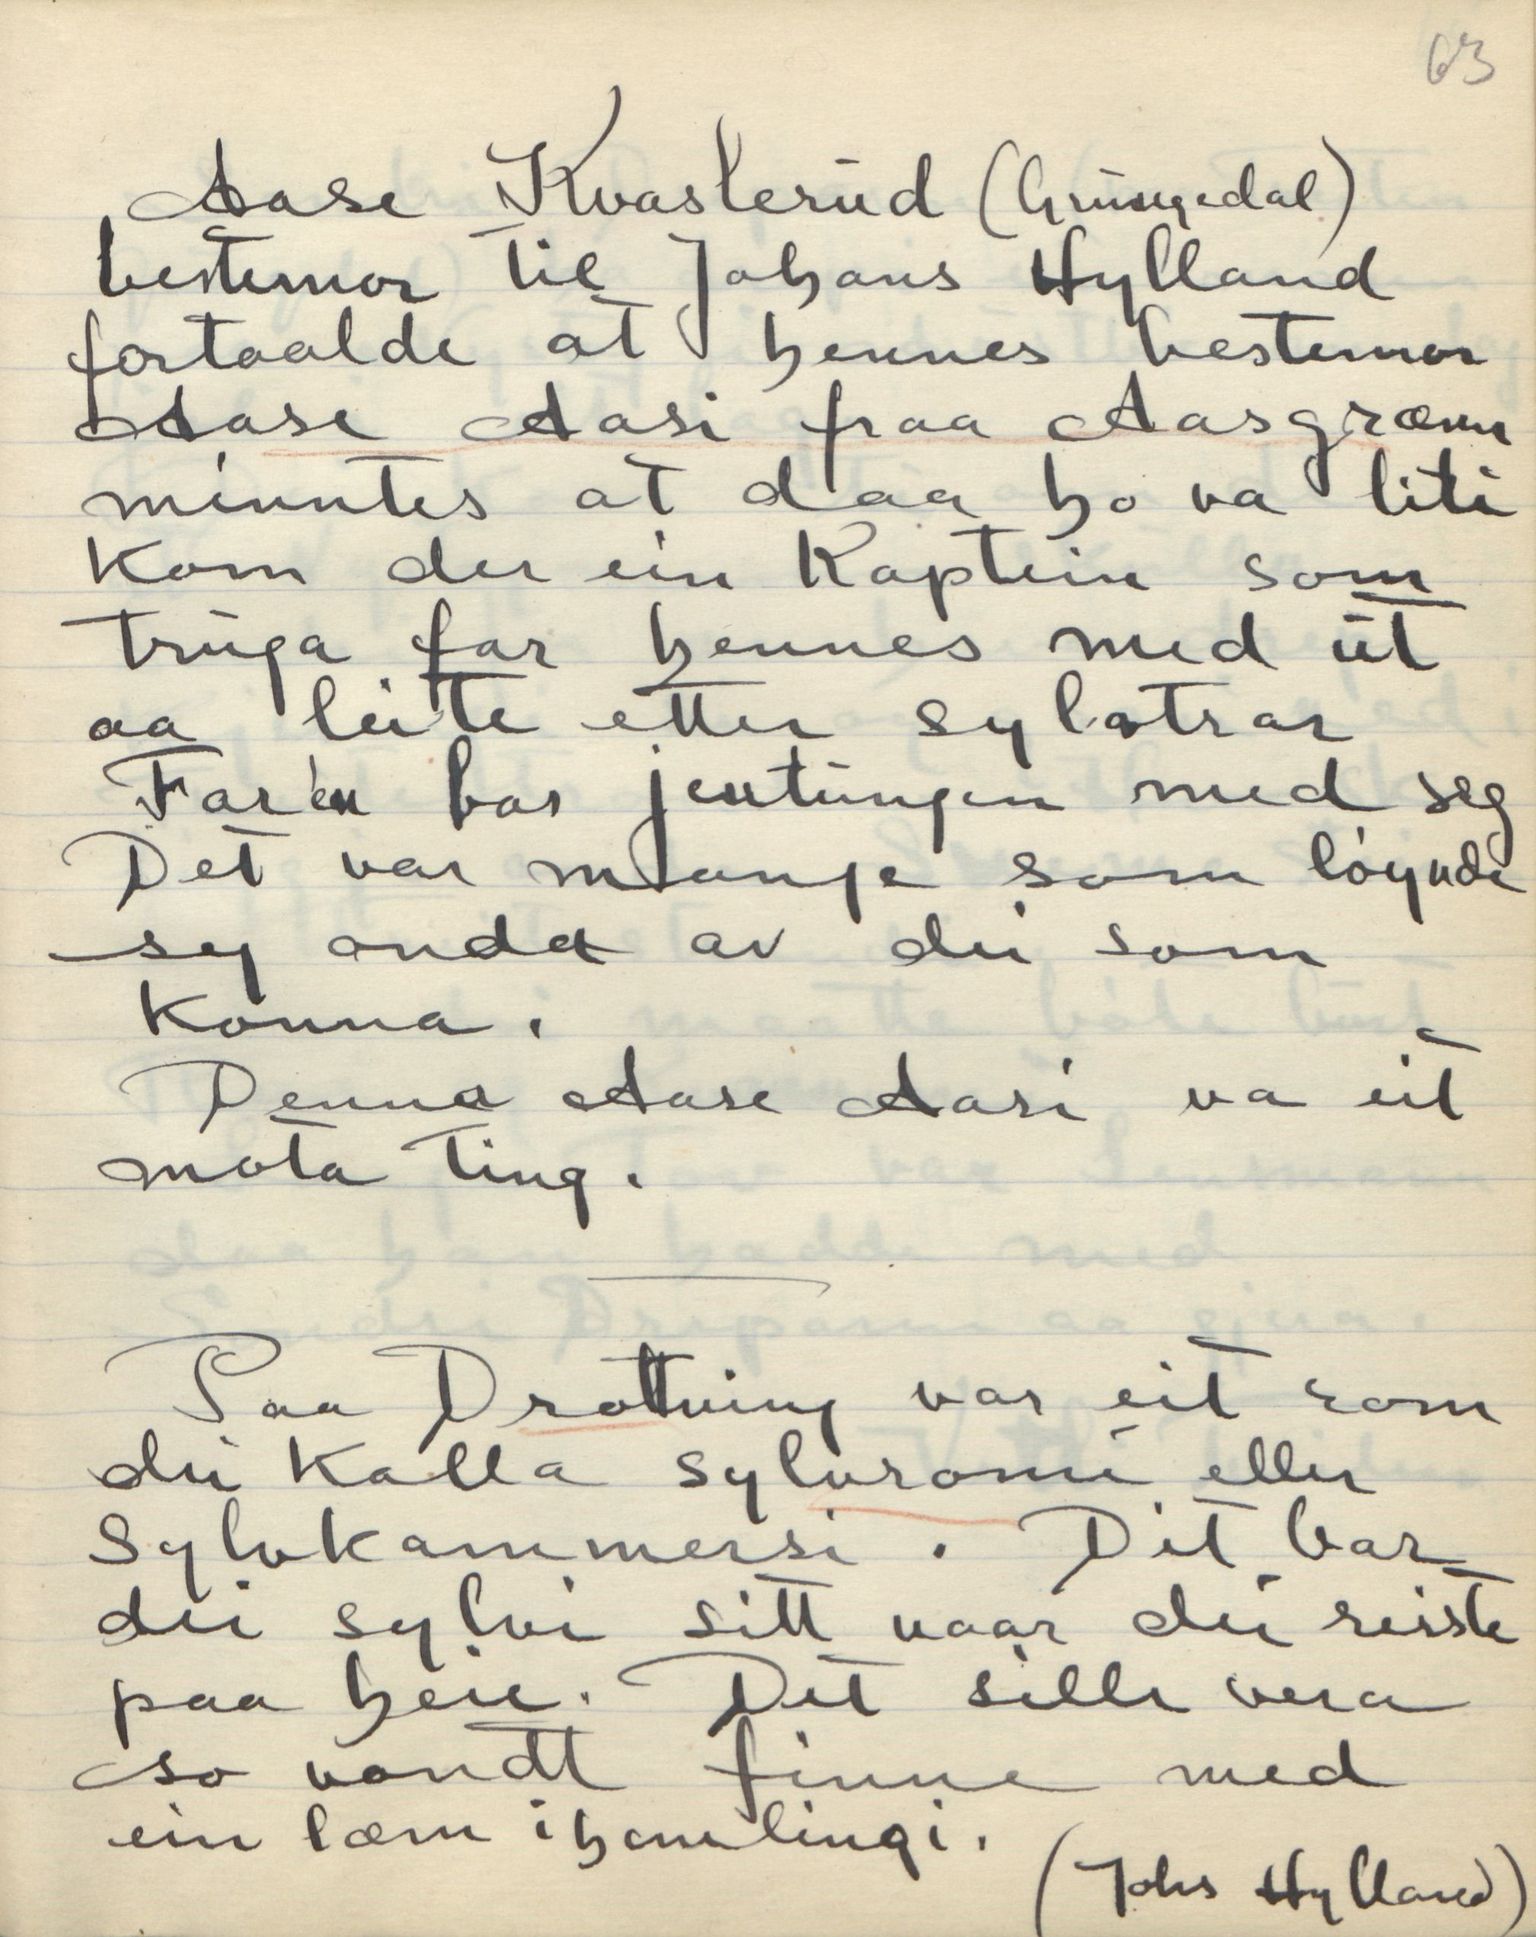 63
Aase Kvasterud (Grungedal)
bestemor til Johans Hylland
fortaalde at hennes bestemor
Aase Aasi fraa Aasgrænn
minntes at daa ho va liti
kom der ein Kaptein som
truga far hennes med ut
aa leite etter sylotrar
Faren bar jentungen med seg
Det var mange som løynde
seg onda av dei som
konna.
Denna Aase Aasi va eit
mota ting.
Paa Drottning var eit rom
dei kalla sylvromi eller
Sylvkammersi. Dit bar
dei sylvi sitt naar dei reiste
paa heie. Det sille vera
so vondt finne med
ein læm i hemlingi.
(Johs Hylland)